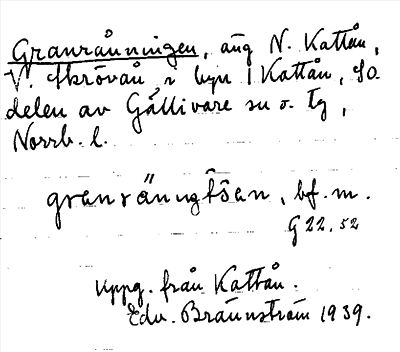 Granrånningen, äng N. Kattån,
V. Skrövån, i byn Kattån, SO.
delen av Gällivare sn o. tg,
Norrb. l.
granränigtsen, bf. m.
G 22.52
Uppg. från Kattån.
Edv. Brännström 1939.